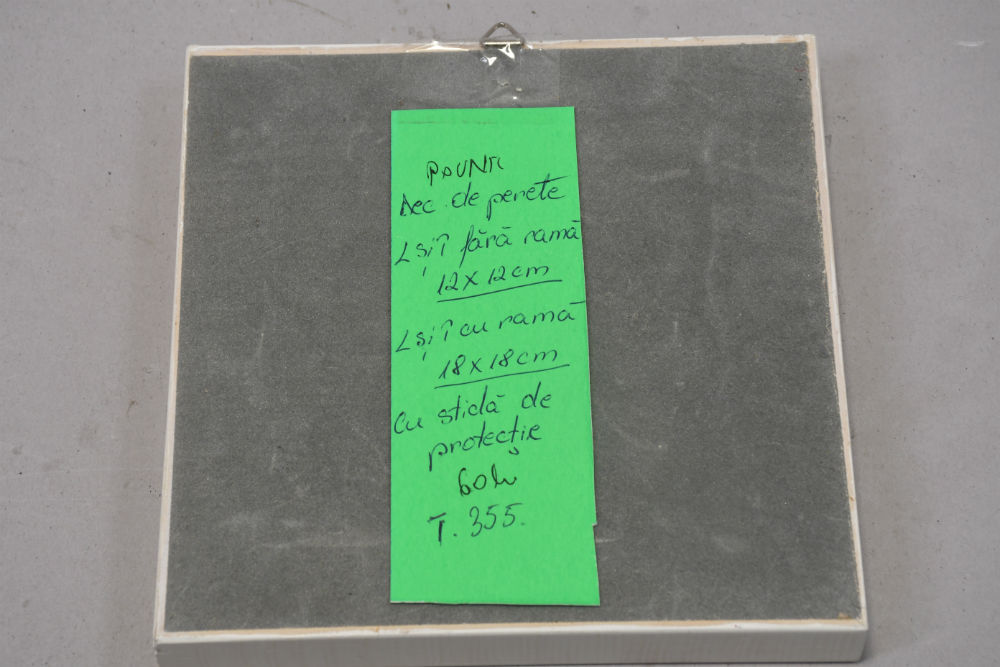 PĂUNI
Dec. de perete
L și Î fără ramă
12 x 12 cm
L și Î cu ramă
18 x 18 cm
Cu sticlă de
protecție
60 lei
T. 355.